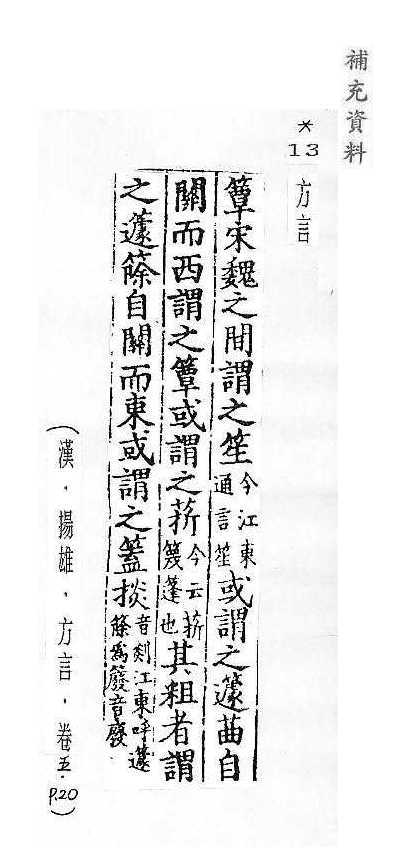 補充資料
*
13
方言
簟宋魏之間謂之笙今江東通言笙或謂之籧曲自
關而西謂之簟或謂之䈑今云䈑篾蓬也其粗者謂
之籧篨自關而東或謂之䈉掞音剡江東呼籧篨為廢音廢
(漢．揚雄．方言．卷五．P.20)